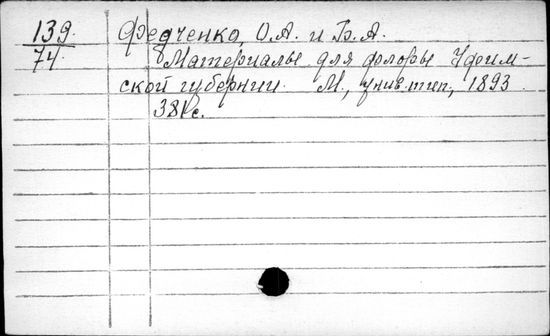 139. Федченко, О.А. и Б.А.
74. Материалы для флоры Уфим-
ской губернии. М., унив. тип., 1893.
381 с.